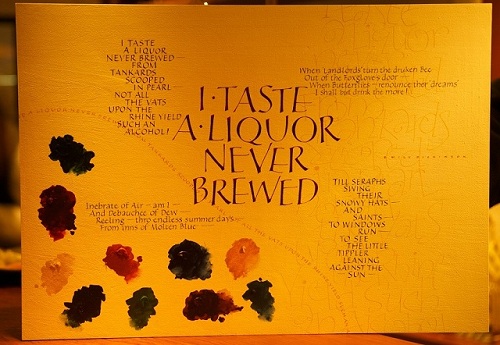 I TASTE
A LIQUOR
NEVER BREWED —
FROM
TANKARDS
SCOOPED
IN PEARL
NOT ALL
THE VATS
UPON THE
RHINE YIELD
SUCH AN
ALCOHOL!
When Landlords' turn the druken Bee
Out of the Foxglove's door —
When Butterflies — renounce thor dreams'
I shall but drink the more!
I · TASTE
A · LIQUOR
NEVER
BREWED
Inebrate of Air — am I —
And Debauchee of Dew —
Reeling — thro endless summer days —
From inns of Molten Blue —
TILL SERAPHS
SWING
THEIR
SNOWY HATS —
AND
SAINTS —
TO WINDOWS
RUN —
TO SEE
THE LITTLE
TIPPLER
LEANING
AGAINST THE
— SUN —